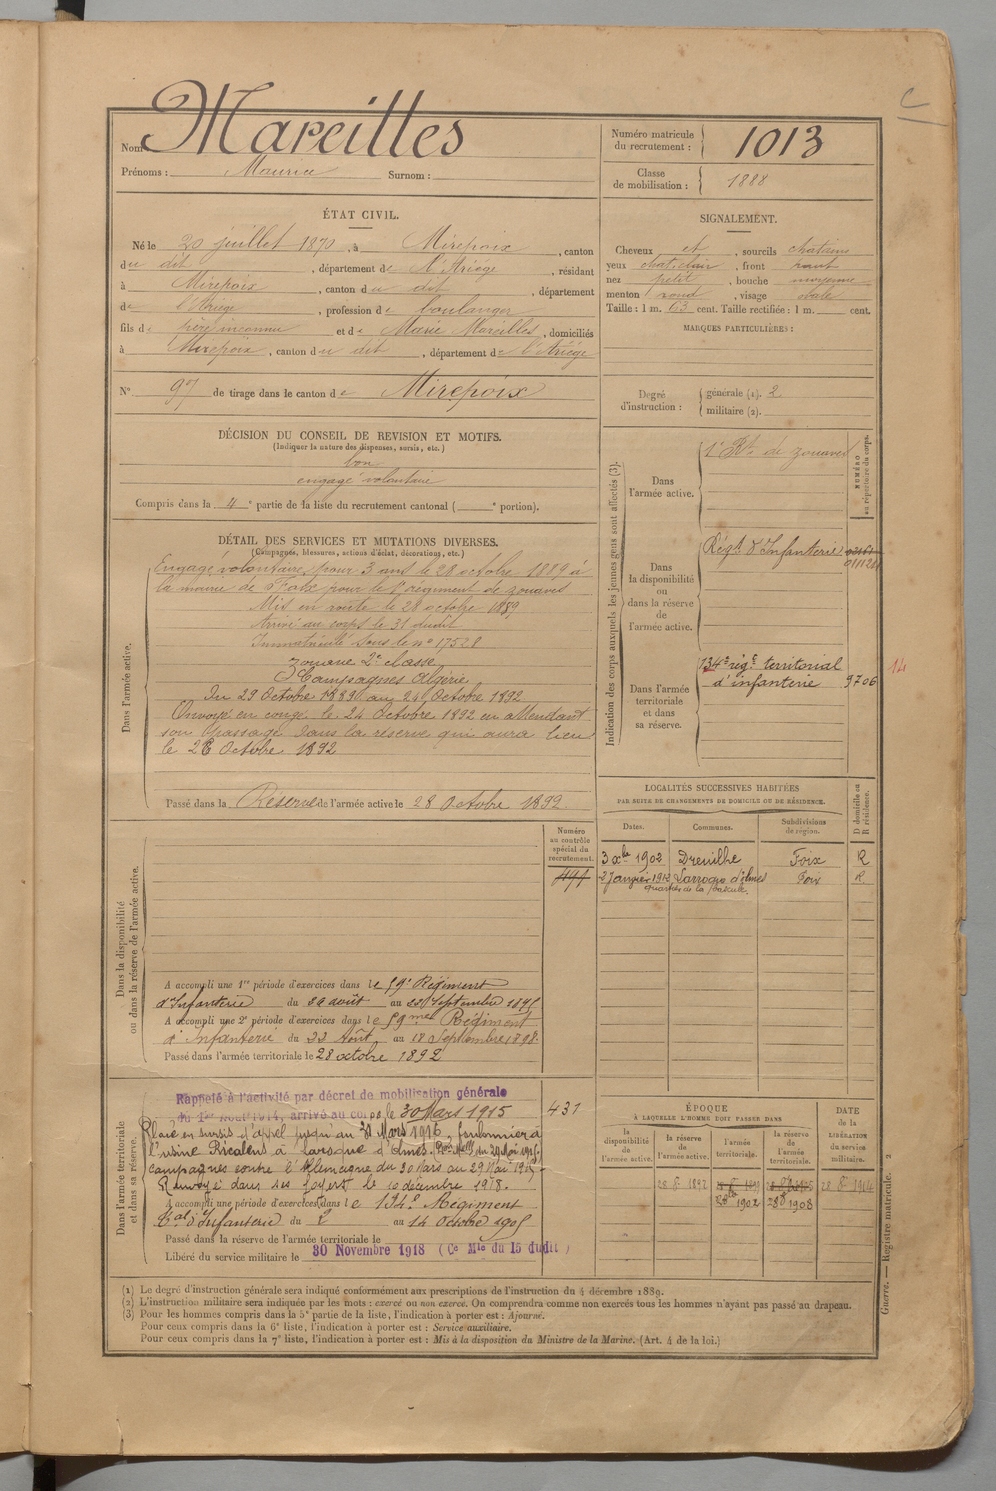 C
Nom : Mareilles
Prénoms : Maurice Surnom :
Numéro matricule du recrutement : 1013
Classe de mobilisation : 1888
ÉTAT CIVIL.
Né le 20 juillet 1870, à Mirepoix, canton
du dit, département de l'Ariège, résidant
à Mirepoix, canton du dit, département
de l'Ariège, profession de boulanger
fils de père inconnu et de Marie Mareilles, domiciliés
à Mirepoix, canton du dit, département de l'Ariège
N° 97 de tirage dans le canton de Mirepoix
SIGNALEMENT.
Cheveux et, sourcils chatains
yeux chat. clair, front haut
nez petit, bouche moyenne
menton rond, visage ovale
Taille : 1 m. 63 cent. Taille rectifiée : 1 m. cent.
MARQUES PARTICULIÈRES :
Degré d'instruction :
générale (1). 2
militaire (2).
DÉCISION DU CONSEIL DE REVISION ET MOTIFS.
(Indiquer la nature des dispenses, sursis, etc.)
bon
engagé volontaire
Compris dans la 4e partie de la liste du recrutement cantonal ( e portion).
DÉTAIL DES SERVICES ET MUTATIONS DIVERSES.
(Campagnes, blessures, actions d'éclat, décorations, etc.)
Dans l'armée active.
Engagé volontaire pour 3 ans le 28 octobre 1889 à
la mairie de Foix pour le 1er régiment de zouaves
Mis en route le 28 octobre 1889
Arrivé au corps le 31 dudit
Immatriculé sous le n° 17528
zouave 2e classe
Campagnes Algérie
Du 29 Octobre 1889 au 24 Octobre 1892
Envoyé en congé le 24 Octobre 1892 en attendant
son passage dans la réserve qui aura lieu
le 28 Octobre 1892
Passé dans la Réserve de l'armée active le 28 Octobre 1892.
Indication des corps auxquels les jeunes gens sont affectés (3).
NUMÉRO au répertoire du corps.
Dans l'armée active.
1er Rt de zouaves
Dans la disponibilité ou dans la réserve de l'armée active.
Régt d'Infanterie
Dans l'armée territoriale et dans sa réserve.
134e régt territorial
d'infanterie 9706
14
LOCALITÉS SUCCESSIVES HABITÉES
PAR SUITE DE CHANGEMENTS DE DOMICILE OU DE RÉSIDENCE.
Dates. Communes. Subdivisions de région. D domicile ou R résidence.
3 Xbre 1902 Dreuilhe Foix R
2 Janvier 1912 Laroque d'Olmes Foix R
quartier de la Bascule.
Dans la disponibilité ou dans la réserve de l'armée active.
Numéro au contrôle spécial du recrutement.
A accompli une 1re période d'exercices dans le 59e Régiment
d'Infanterie du août au Septembre 1895
A accompli une 2e période d'exercices dans le 59me Régiment
d'Infanterie du 22 Août au 18 Septembre 1898.
Passé dans l'armée territoriale le 28 octobre 1892
Dans l'armée territoriale et dans sa réserve.
Rappelé à l'activité par décret de mobilisation générale
du 1er Août 1914, arrivé au corps le 30 Mars 1915
431
Placé en sursis d'appel jusqu'au 31 Mars 1916, foulonnier à
l'usine Ricalens à Laroque d'Olmes.
campagnes contre l'Allemagne du 30 Mars au 29 Mai 1915
Renvoyé dans ses foyers le 10 décembre 1918.
A accompli une période d'exercices dans le 134e Régiment
tal d'Infanterie du 2 au 14 Octobre 1905
Passé dans la réserve de l'armée territoriale le
Libéré du service militaire le 30 Novembre 1918 (Ce Mle du 15 dudit)
ÉPOQUE
À LAQUELLE L'HOMME DOIT PASSER DANS
la disponibilité de l'armée active. la réserve de l'armée active. l'armée territoriale. la réserve de l'armée territoriale.
DATE DE LA LIBÉRATION du service militaire.
28 8e 1892
28 8e 1914
1902 1908
Guerre. — Registre matricule. 2
(1) Le degré d'instruction générale sera indiqué conformément aux prescriptions de l'instruction du 4 décembre 1889.
(2) L'instruction militaire sera indiquée par les mots : exercé ou non exercé. On comprendra comme non exercés tous les hommes n'ayant pas passé au drapeau.
(3) Pour les hommes compris dans la 5e partie de la liste, l'indication à porter est : Ajourné.
Pour ceux compris dans la 6e liste, l'indication à porter est : Service auxiliaire.
Pour ceux compris dans la 7e liste, l'indication à porter est : Mis à la disposition du Ministre de la Marine. (Art. 4 de la loi.)